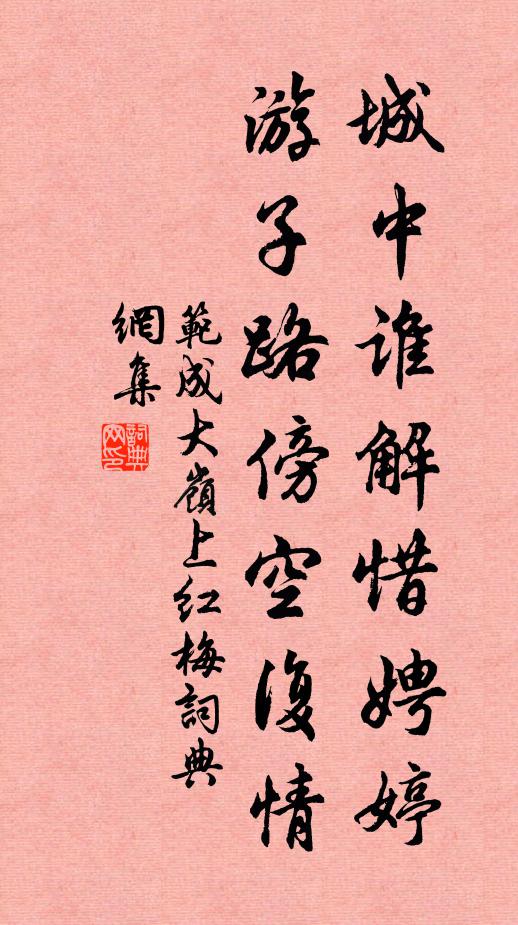 城中谁解惜娉婷
游子路傍空復情
範成大嶺上红梅詞典
網集
詞典网印